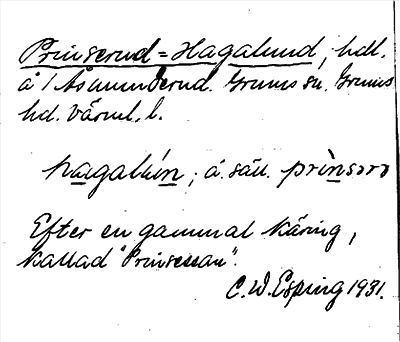 Prinserud = Hagalund, hdl.
å 1 Åsmunderud. Grums sn. Grums
hd. Värml. l.
hagalún; á. säll. prìnsərə
Efter en gammal käring,
kallad "Prinsessan".
C. W. Esping 1931.